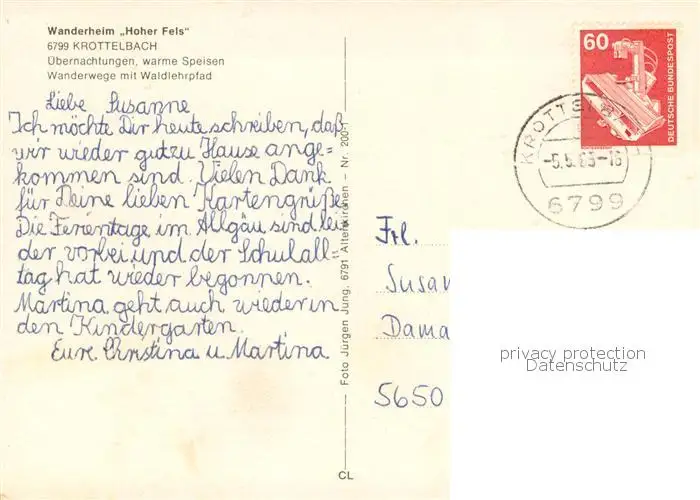 Wanderheim „Hoher Fels“
6799 KROTTELBACH
Übernachtungen, warme Speisen
Wanderwege mit Waldlehrpfad
Liebe Susanne
Ich möchte Dir heute schreiben, daß
wir wieder gut zu Hause ange=
kommen sind. Vielen Dank
für Deine lieben Kartengrüße
Die Ferientage im Allgäu sind lei
der vorbei und der Schulall=
tag hat wieder begonnen.
Martina geht auch wieder in
den Kindergarten.
Eure Christina u. Martina
Foto Jürgen Jung, 6791 Altenkirchen - Nr. 200-1
CL
60
DEUTSCHE BUNDESPOST
KROTTEL
-5.5.83-16
6799
Frl.
Susan
Dama
5650
privacy protection
Datenschutz